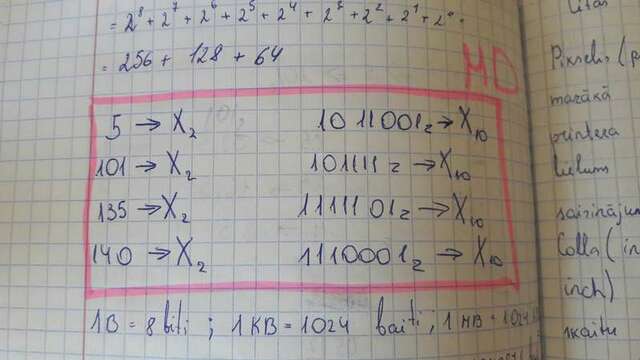 = 2⁸ + 2⁷ + 2⁶ + 2⁵ + 2⁴ + 2³ + 2² + 2¹ + 2⁰
= 256 + 128 + 64
MD
5 → X₂ 1011001₂ → X₁₀
101 → X₂ 101111₂ → X₁₀
135 → X₂ 1111101₂ → X₁₀
140 → X₂ 1110001₂ → X₁₀
1B = 8 biti ; 1KB = 1024 baiti ; 1MB = 1024
Citas
Pikselis (p
mazākā
printera
lielums
saīsinājum
Colla (in
inch)
skaitu